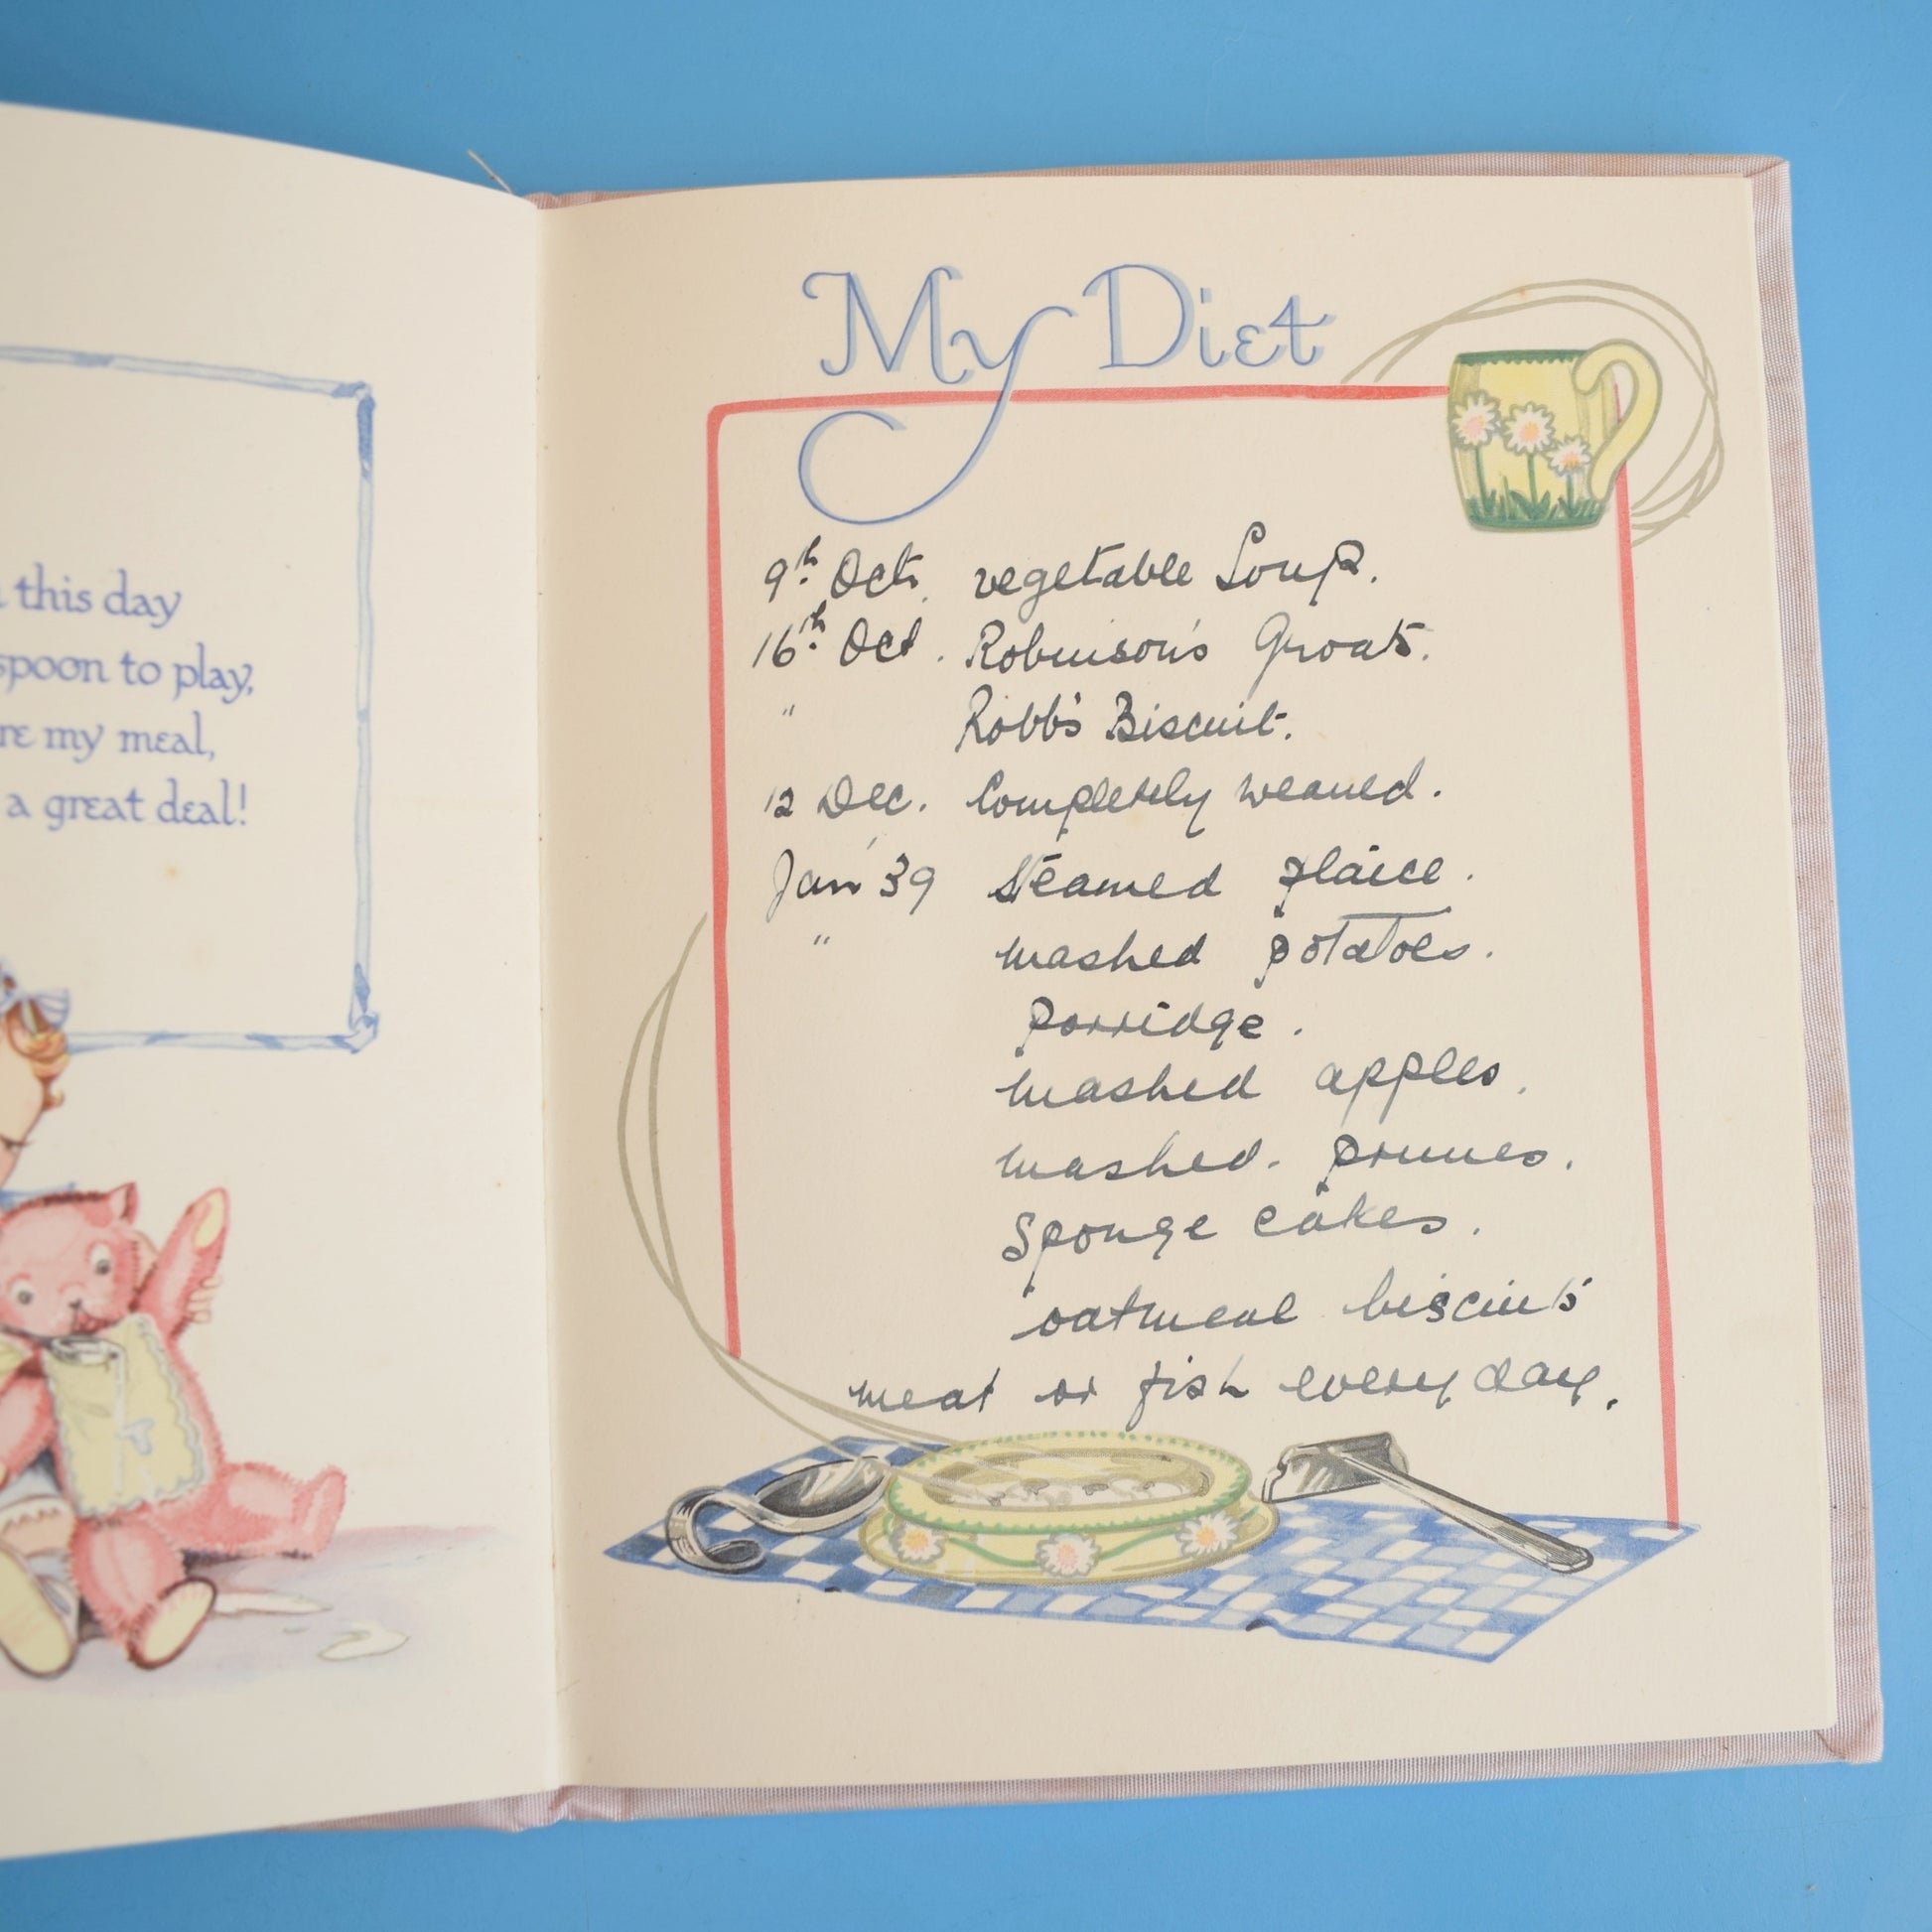 this day
spoon to play,
re my meal,
a great deal!
My Diet
9th Oct. vegetable Soup.
16th Oct. Robinson's Groats.
" Robb's Biscuit.
12 Dec. Completely weaned.
Jan' 39 Steamed plaice.
" mashed potatoes.
porridge.
mashed apples.
mashed. prunes.
Sponge cakes.
oatmeal biscuits
meat or fish every day.